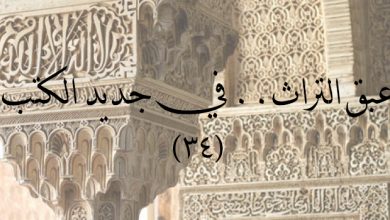 عبق التراث . . في جديد الكتب
(٣٤)